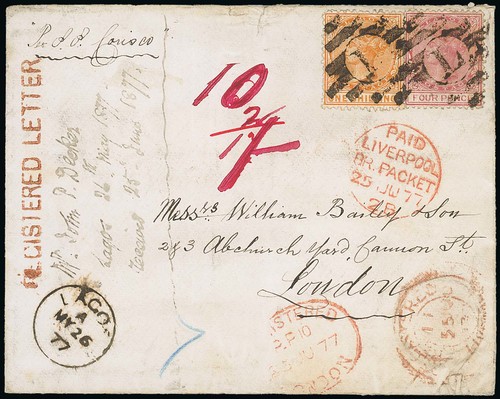 Pr. S.S. Corisco
ONE SHILLING
FOUR PENCE
L
L
REGISTERED LETTER
10
3/
1/
Mr. John P. Decker
Lagos 26 May 1877
25 June 1877
PAID
LIVERPOOL
BR. PACKET
25 JU 77
2B
Messrs William Bailey & Son
2 & 3 Abchurch Yard, Cannon St.
London
LAGOS
A
MY 26
77
REGISTERED
77
LONDON